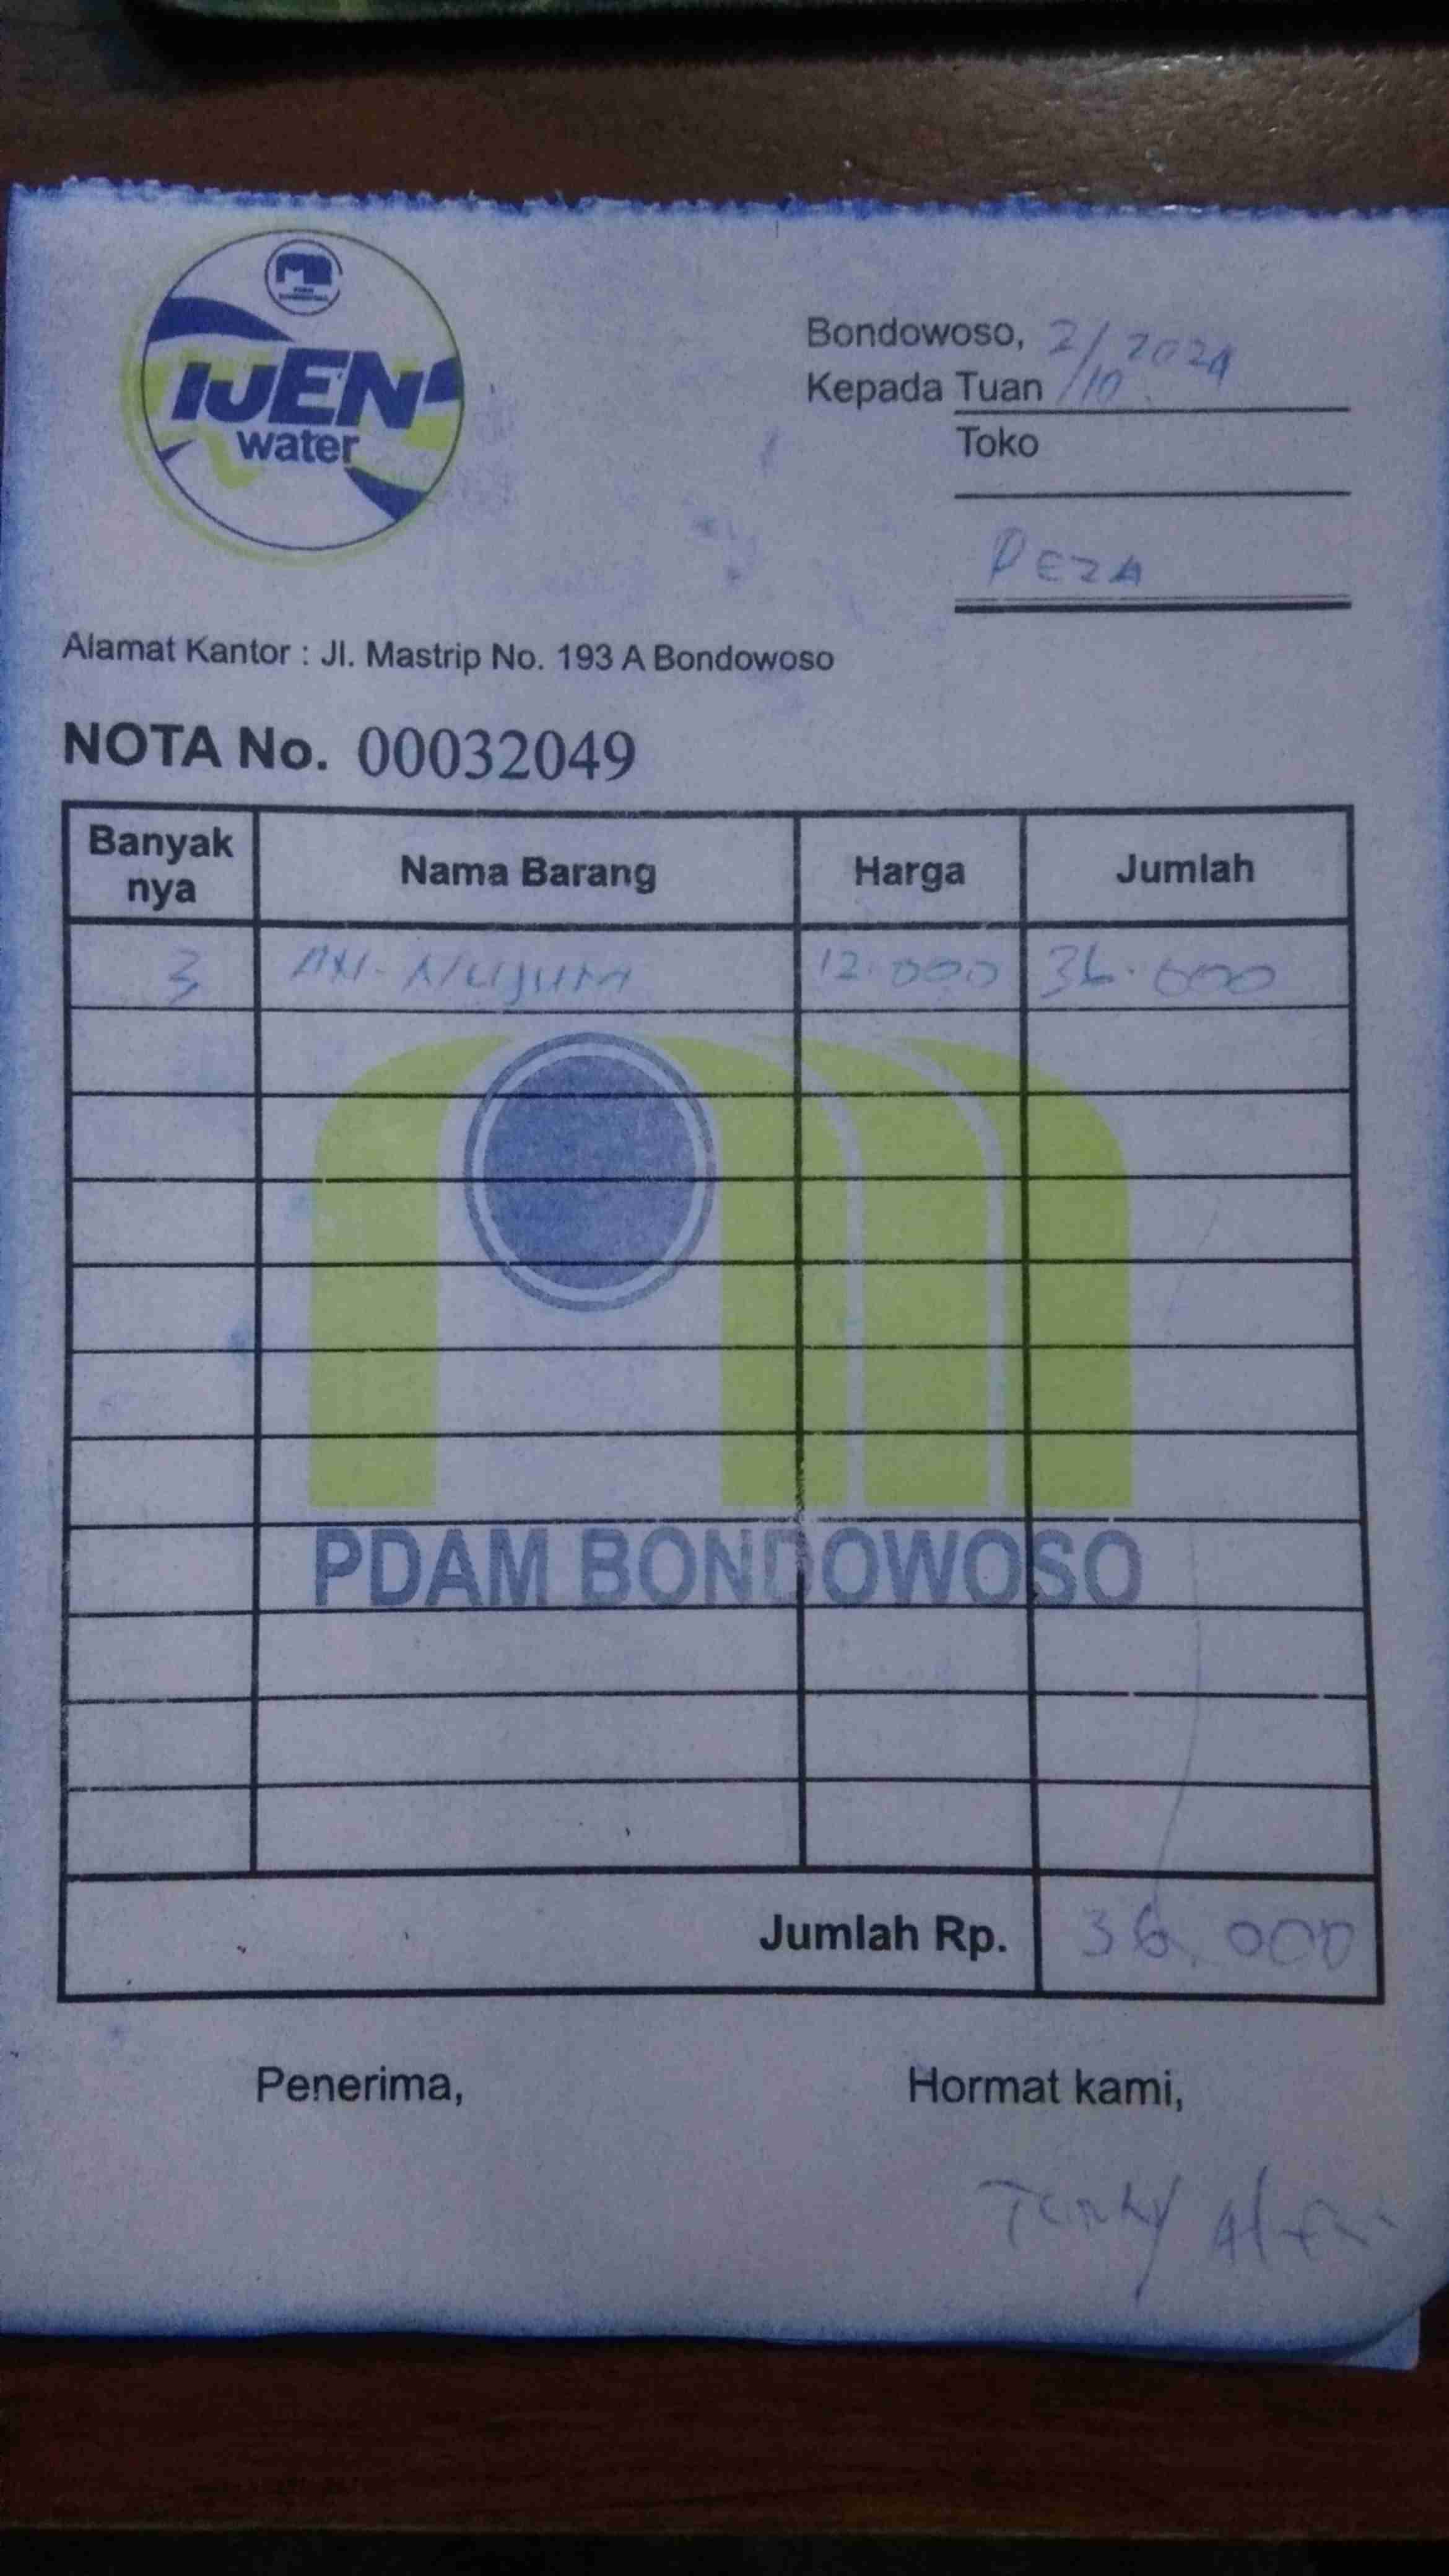 IJEN
water
Bondowoso, 2/10 2024
Kepada Tuan
Toko
REZA
Alamat Kantor : Jl. Mastrip No. 193 A Bondowoso
NOTA No. 00032049
Banyak nya Nama Barang Harga Jumlah
3 12.000 36.000
PDAM BONDOWOSO
Jumlah Rp. 36.000
Penerima, Hormat kami,